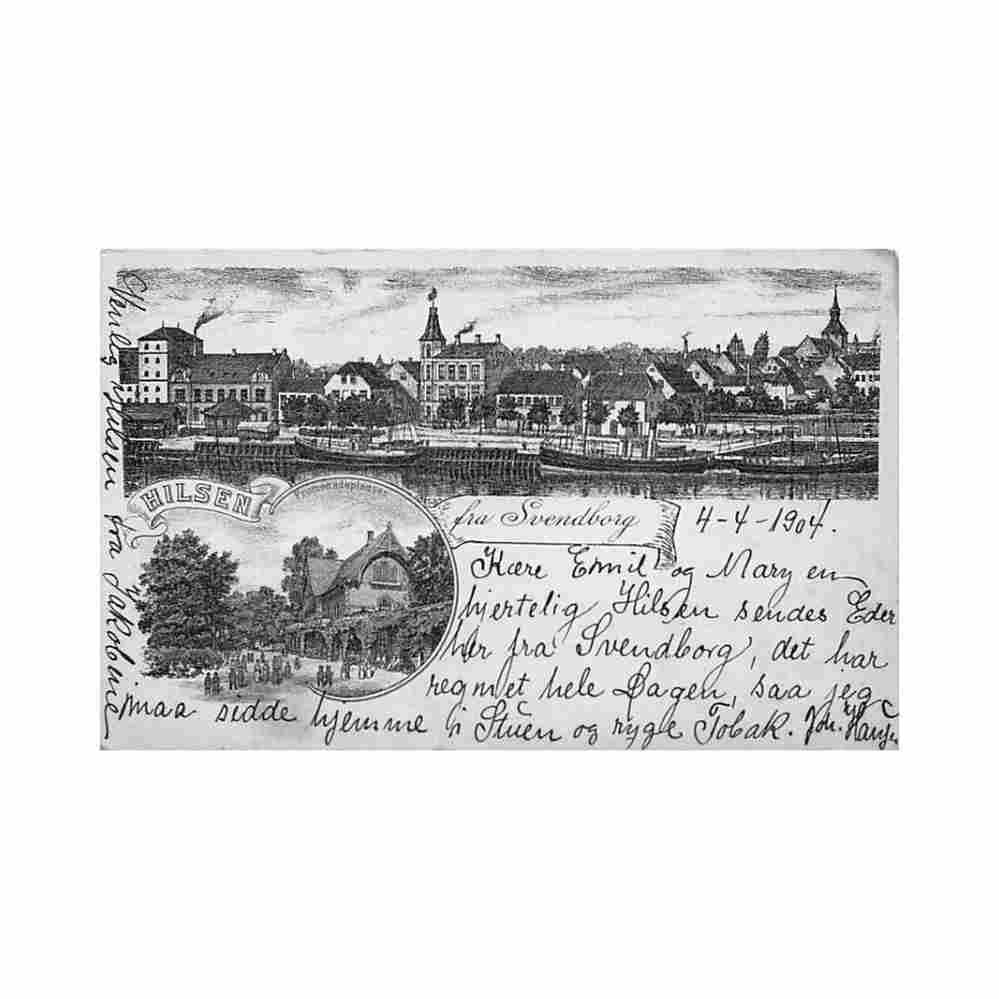 HILSEN
fra Svendborg
4-4-1904.
Kære Emil og Mary en
hjertelig Hilsen sendes Eder
her fra Svendborg, det har
regnet hele Dagen, saa jeg
maa sidde hjemme i Stuen og ryge Tobak. Joh. Hansen
Venlig hilsen fra Jakobine